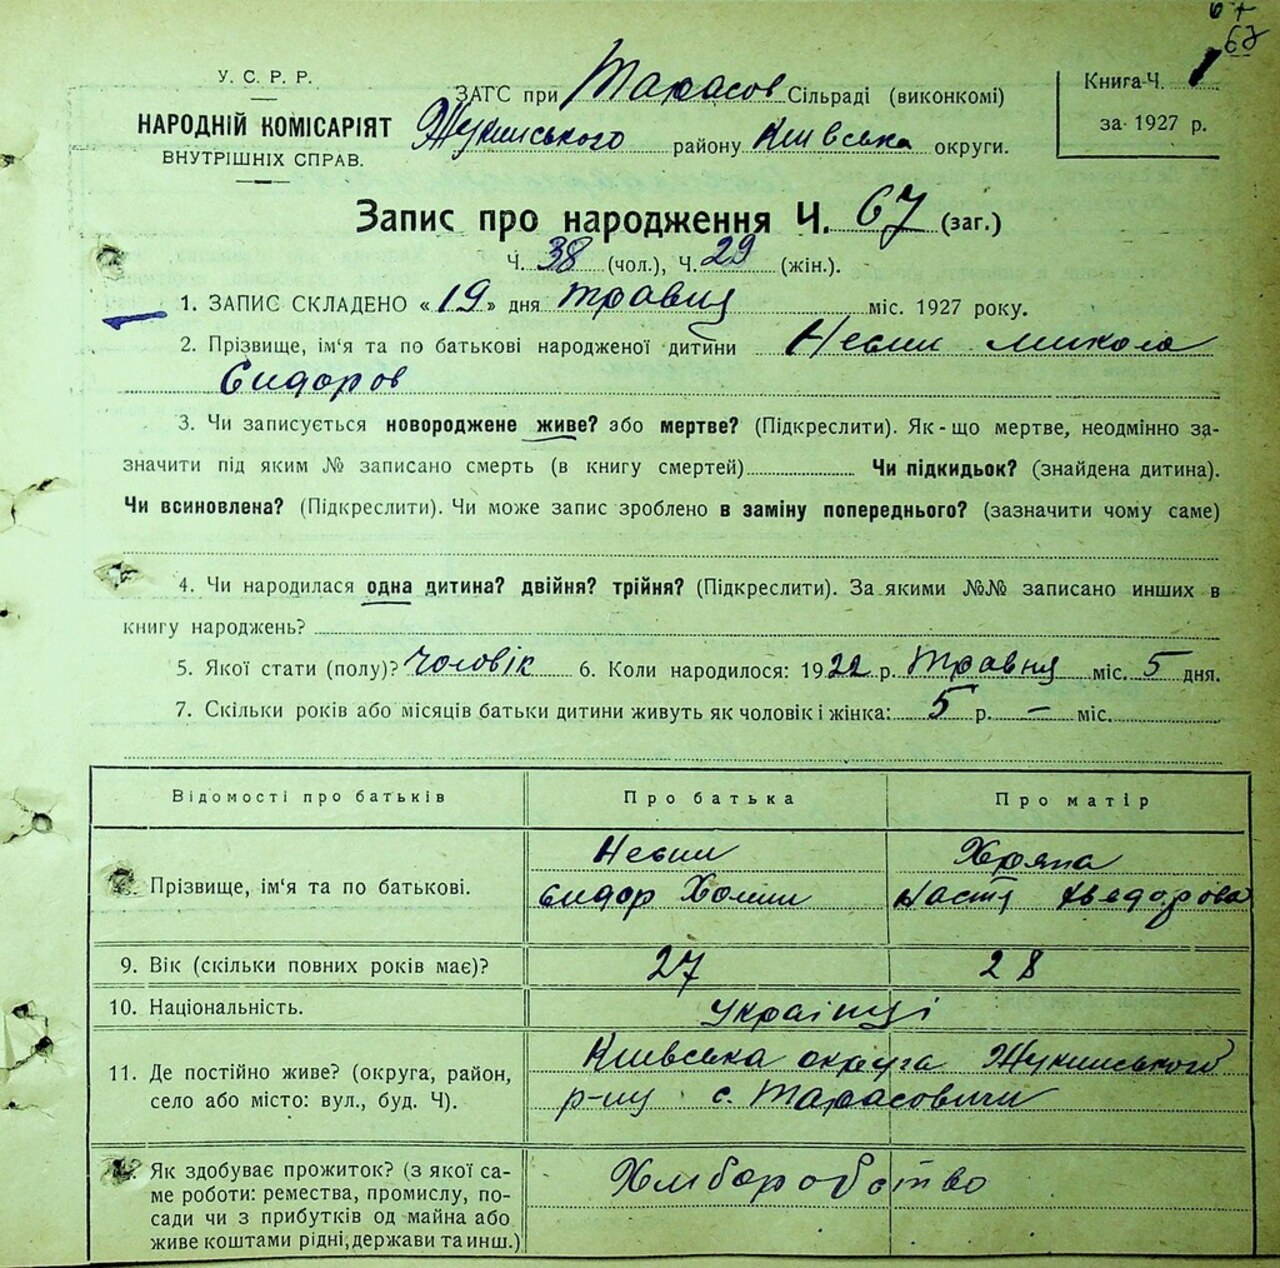 67
67
У. С. Р. Р.
НАРОДНІЙ КОМІСАРІЯТ
ВНУТРІШНІХ СПРАВ.
ЗАГС при Тарасов Сільраді (виконкомі)
Жукинського району Київська округи.
Книга Ч. 1
за 1927 р.
Запис про народження Ч. 67 (заг.)
Ч. 38 (чол.), Ч. 29 (жін.).
1. ЗАПИС СКЛАДЕНО «19» дня травня міс. 1927 року.
2. Прізвище, ім'я та по батькові народженої дитини Микола
Сидоров
3. Чи записується новороджене живе? або мертве? (Підкреслити). Як-що мертве, неодмінно за-
значити під яким № записано смерть (в книгу смертей) Чи підкидьок? (знайдена дитина).
Чи всиновлена? (Підкреслити). Чи може запис зроблено в заміну попереднього? (зазначити чому саме)
4. Чи народилася одна дитина? двійня? трійня? (Підкреслити). За якими №№ записано инших в
книгу народжень?
5. Якої стати (полу)? Чоловік 6. Коли народилося: 1922 р. Травня міс. 5 дня.
7. Скільки років або місяців батьки дитини живуть як чоловік і жінка: 5 р. — міс.
Відомості про батьків Про батька Про матір
Прізвище, ім'я та по батькові.
Сидор Хомин Настя
9. Вік (скільки повних років має)? 27 28
10. Національність. Українці
11. Де постійно живе? (округа, район,
село або місто: вул., буд. Ч).
Київська округа Жукинського
р-ну с. Тарасовичи
Як здобуває прожиток? (з якої са-
ме роботи: ремества, промислу, по-
сади чи з прибутків од майна або
живе коштами рідні, держави та инш.)
Хліборобство